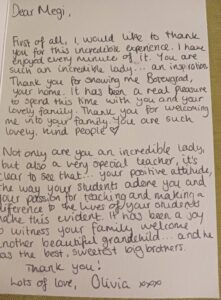 Dear Megi,
First of all, I would like to thank
you for this incredible experience. I have
enjoyed every minute of it. You are
such an incredible lady... an inspiration.
Thank you for showing me
your home. It has been a real pleasure
to spend this time with you and your
lovely family. Thank you for welcoming
me into your family. You are such
lovely, kind people ♡
Not only are you an incredible lady,
but also a very special teacher, it's
clear to see that... your positive attitude,
the way your students adore you and
your passion for teaching and making a
difference to the lives of your students
make this evident. It has been a joy
to witness your family welcome
another beautiful grandchild... and he
has the best, sweetest big brothers.
Thank you!
Lots of love, Olivia xxxx